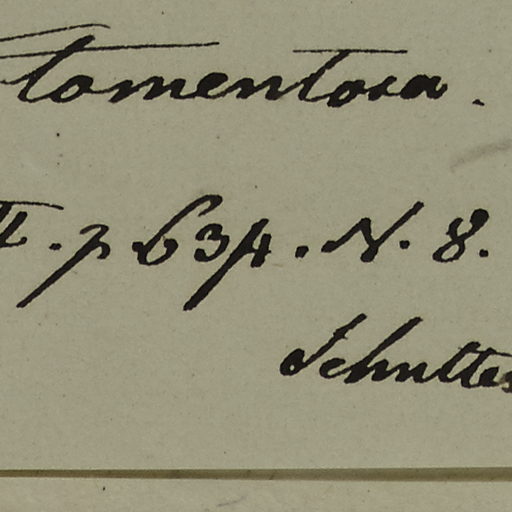 tomentosa.
II. p 634. N. 8.
Schultes